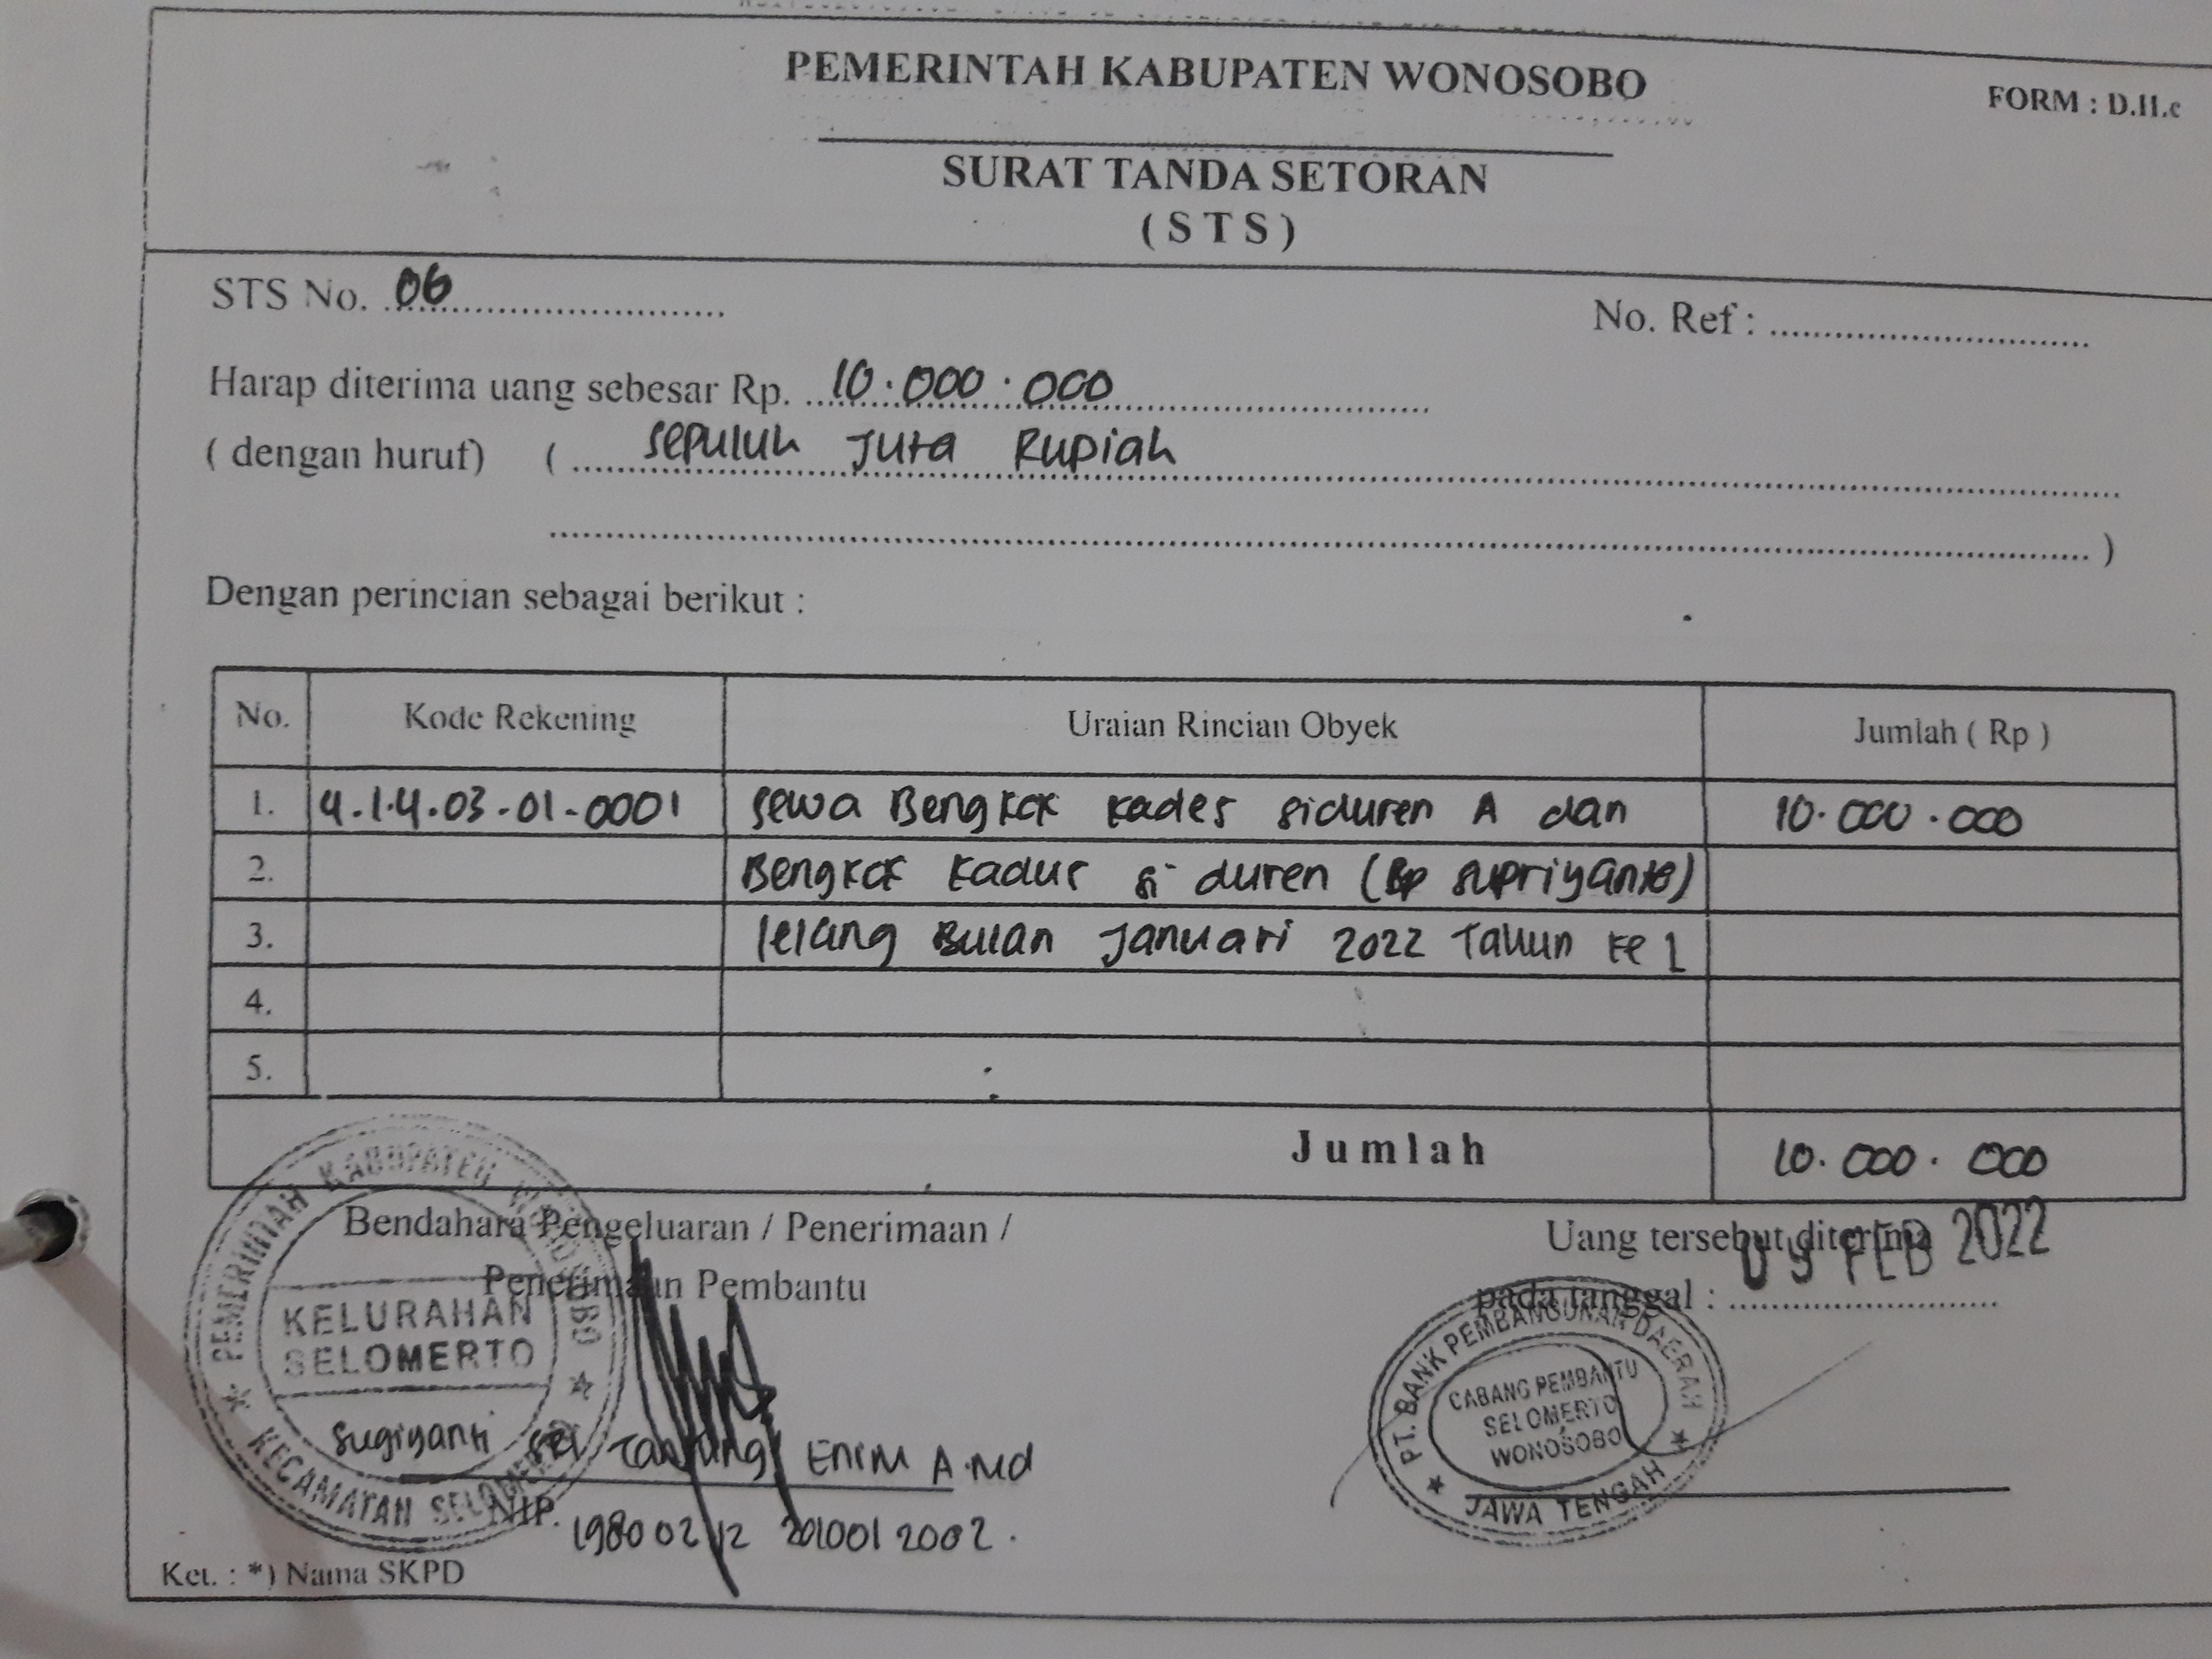 PEMERINTAH KABUPATEN WONOSOBO
FORM : D.II.c
SURAT TANDA SETORAN
( S T S )
STS No. 06
No. Ref : ..............................
Harap diterima uang sebesar Rp. 10.000.000
( dengan huruf) ( sepuluh Juta Rupiah
)
Dengan perincian sebagai berikut :
No. Kode Rekening Uraian Rincian Obyek Jumlah ( Rp )
1. 4.1.4.03-01-0001 sewa Bengkok kades siduren A dan 10.000.000
2. Bengkok kadus si duren (Bp supriyanto)
3. lelang Bulan Januari 2022 Tahun ke 1
4.
5.
Jumlah 10.000.000
Bendahara Pengeluaran / Penerimaan /
Penerimaan Pembantu
Uang tersebut diterima
pada tanggal : FEB 2022
PEMERINTAH KABUPATEN WONOSOBO
KELURAHAN
SELOMERTO
KECAMATAN SELOMERTO
PT. BANK PEMBANGUNAN DAERAH
CABANG PEMBANTU
SELOMERTO
WONOSOBO
JAWA TENGAH
Sugiyanti Sri Tanjung Enim A.Md
NIP. 19800212 201001 2002.
Ket. : *) Nama SKPD